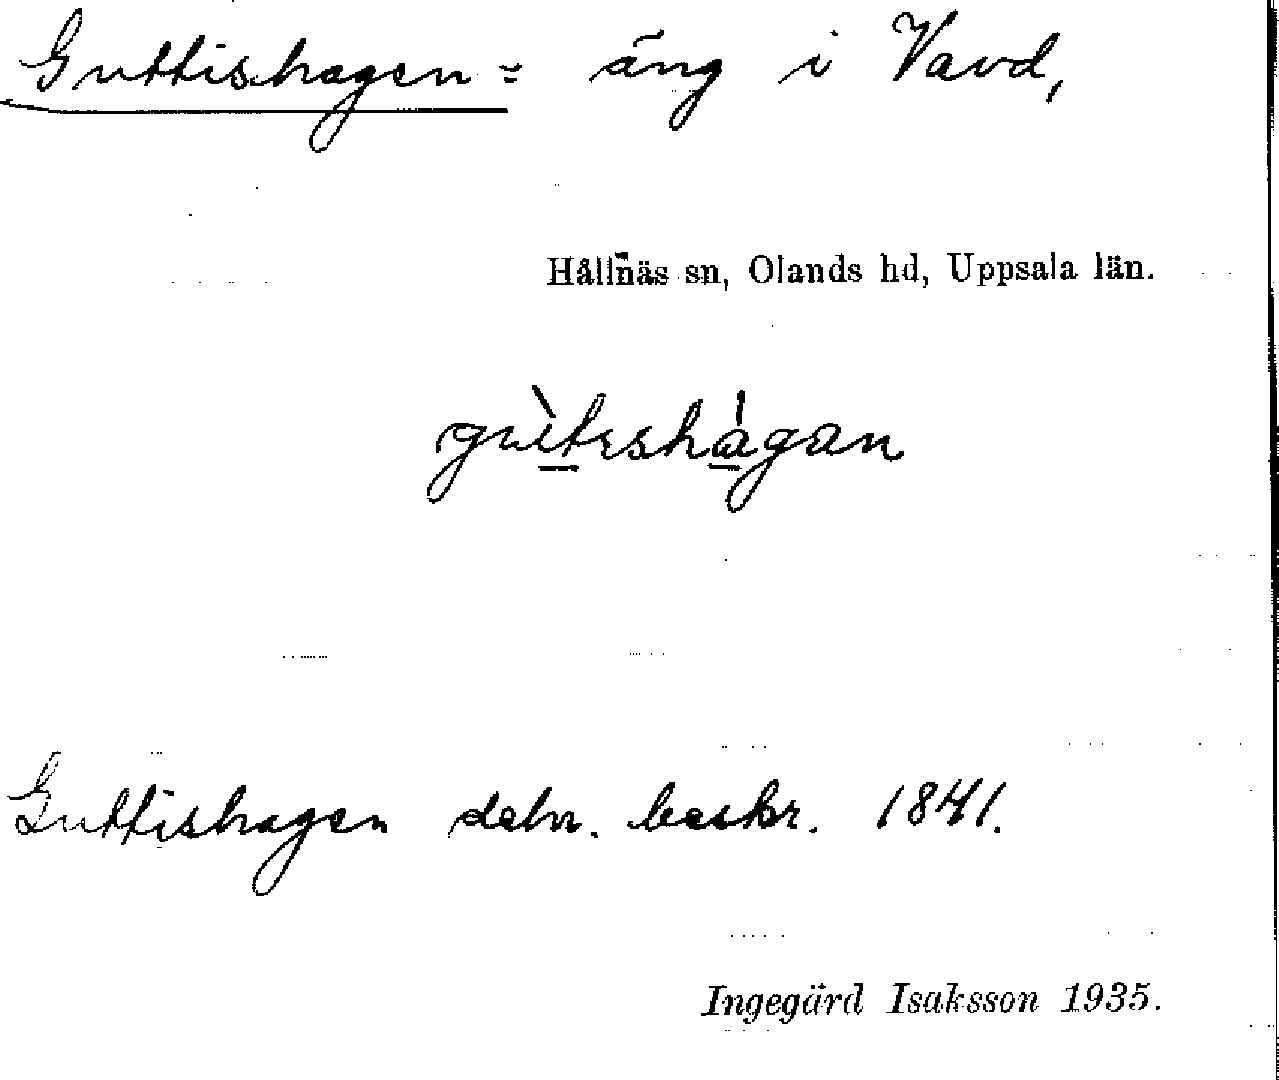 Guttishagen = äng i Vavd,
Hållnäs sn, Olands hd, Uppsala län.
Guttishagen deln. beskr. 1841.
Ingegärd Isaksson 1935.